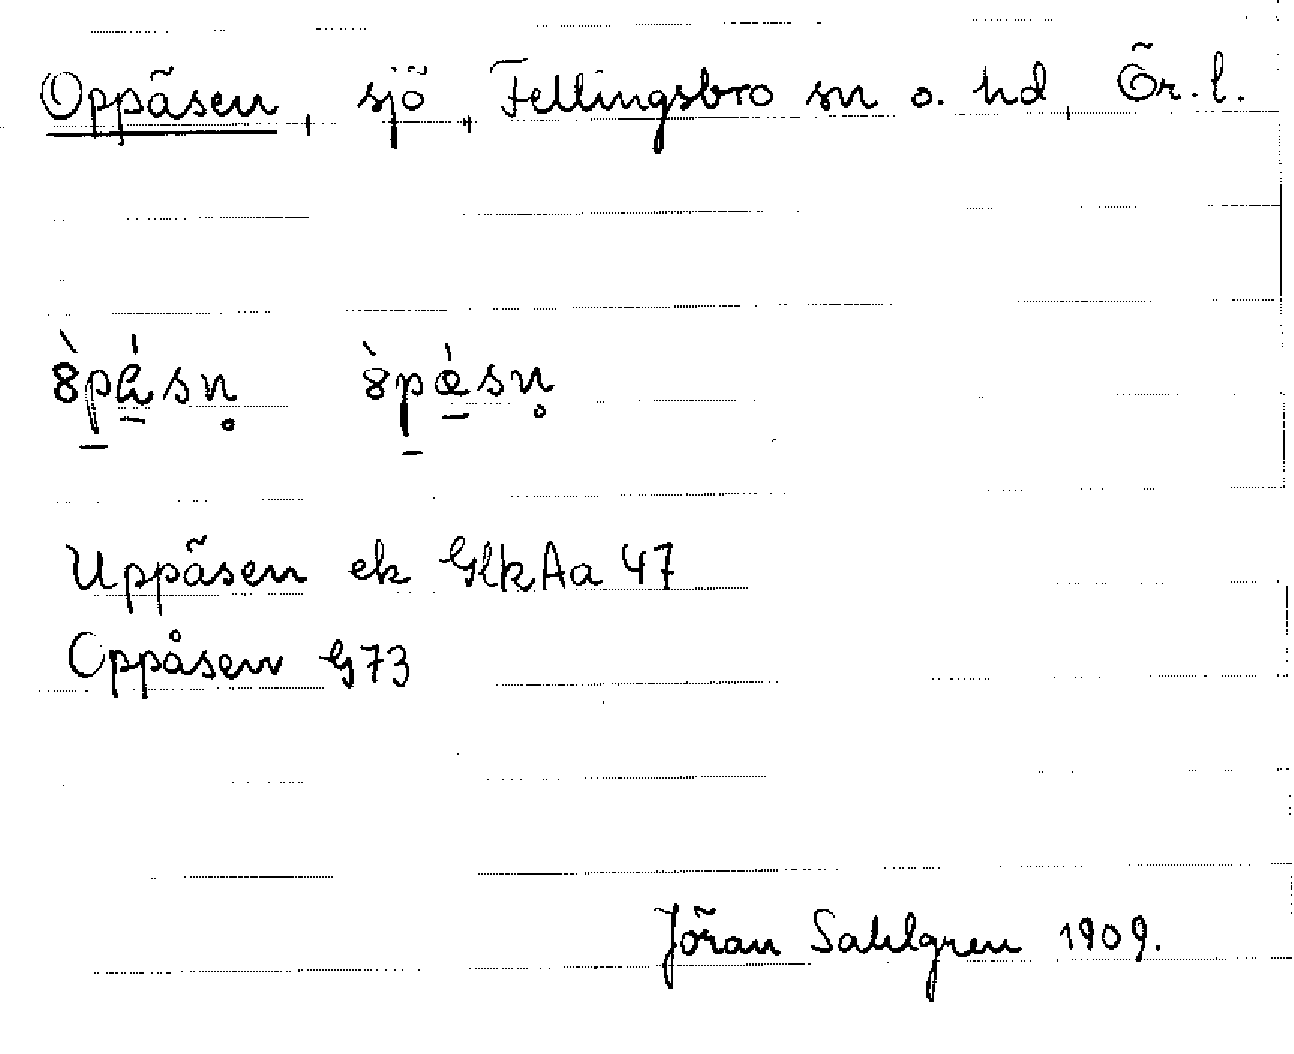 Oppåsen, sjö, Fellingsbro sn o. hd, Ör. l.
Uppåsen ek GlkAa 47
Oppåsen G 73
Jöran Sahlgren 1909.